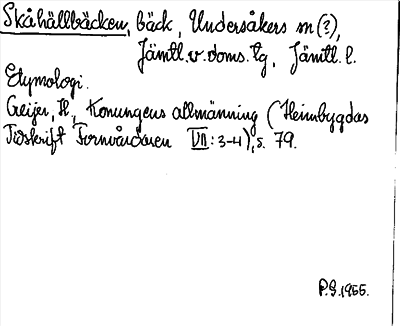 Skåhällbäcken, bäck, Undersåkers sn (?),
Jämtl. v. doms. tg, Jämtl. l.
Etymologi.
Geijer, H, Konungens allmänning (Heimbygdas
Tidskrift Fornvårdaren VII: 3-4), s. 79.
P.G. 1955.